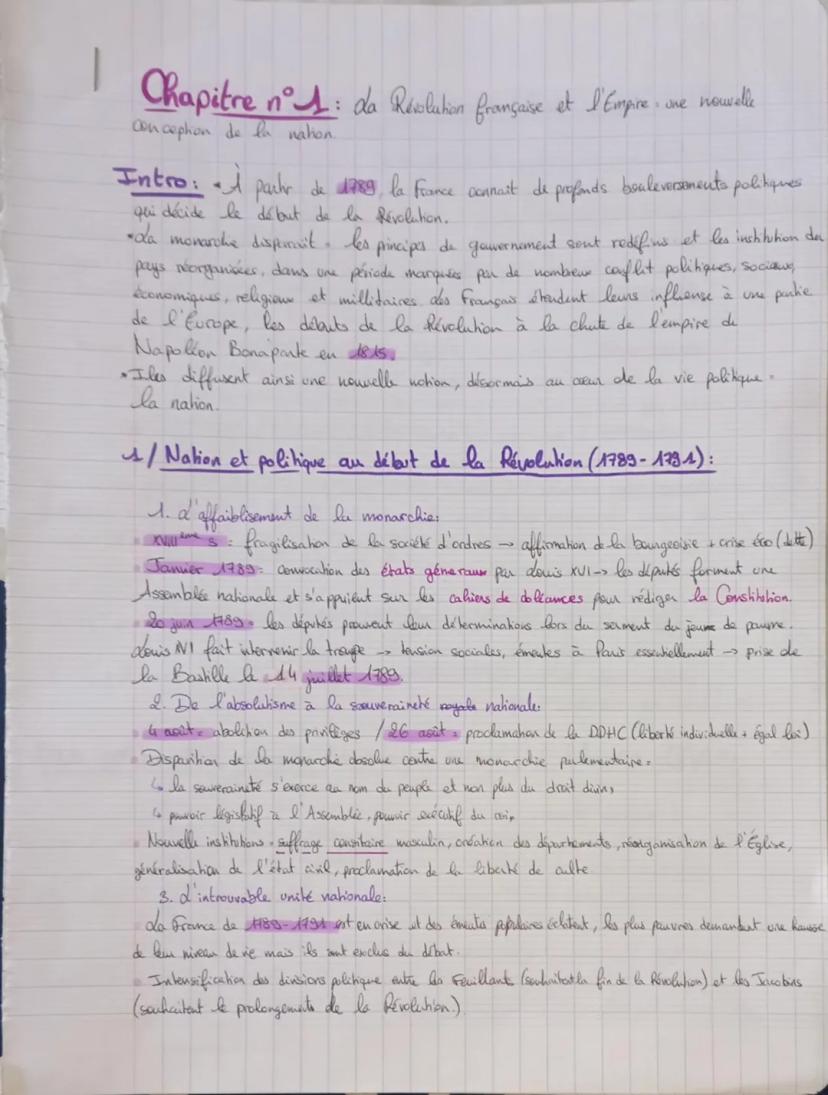 Chapitre n°1 : La Révolution française et l'Empire : une nouvelle
conception de la nation.
Intro : • À partir de 1789, la France connait de profonds bouleversements politiques
qui décide le début de la Révolution.
• La monarchie disparait. les principes de gouvernement sont redéfins et les institution du
pays réorganisées, dans une période marquées par de nombreux conflit politiques, sociaux,
économiques, religieux et millitaires des Français étendent leurs influense à une partie
de l'Europe, les débuts de la Révolution à la chute de l'empire de
Napoléon Bonaparte en 1815.
• Iles diffusent ainsi une nouvelle notion, désormais au cœur de la vie politique :
la nation.
1/ Nation et politique au début de la Révolution (1789-1791) :
1. L'affaiblisement de la monarchie:
XVIIIème s : fragilisation de la société d'ordres → affirmation de la bourgeoisie + crise éco (dette)
Janvier 1789 : convocation des états généraux par Louis XVI → les députés forment une
Assemblée nationale et s'appuient sur les cahiers de doléances pour rédiger la Constitution.
20 juin 1789 : les députés prouvent leur déterminations lors du serment du jeume de paume.
Louis XVI fait intervenir la troupe → tension sociales, émeutes à Paris essentiellement → prise de
la Bastille le 14 juillet 1789.
2. De l'absolutisme à la souveraineté royale nationale:
4 août : abolition des privilèges / 26 août : proclamation de la DDHC (liberté individuelle + égal loi)
Disparition de la monarchie absolue contre une monarchie parlementaire :
↳ la souveraineté s'exerce au nom du peuple et non plus du droit divin,
↳ pouvoir législatif à l'Assemblée, pouvoir exécutif du roi,
Nouvelle institutions : suffrage censitaire masculin, création des départements, réorganisation de l'Église,
généralisation de l'état civil, proclamation de la liberté de culte
3. L'introuvable unité nationale:
La France de 1789-1791 est en crise et des émeutes populaires éclatent, les plus pauvres demandent une hausse
de leur niveau de vie mais ils sont exclus du débat.
Intensification des divisions politique entre les Feuillants (souhaitent la fin de la Révolution) et les Jacobins
(souhaitent le prolongements de la Révolution.)